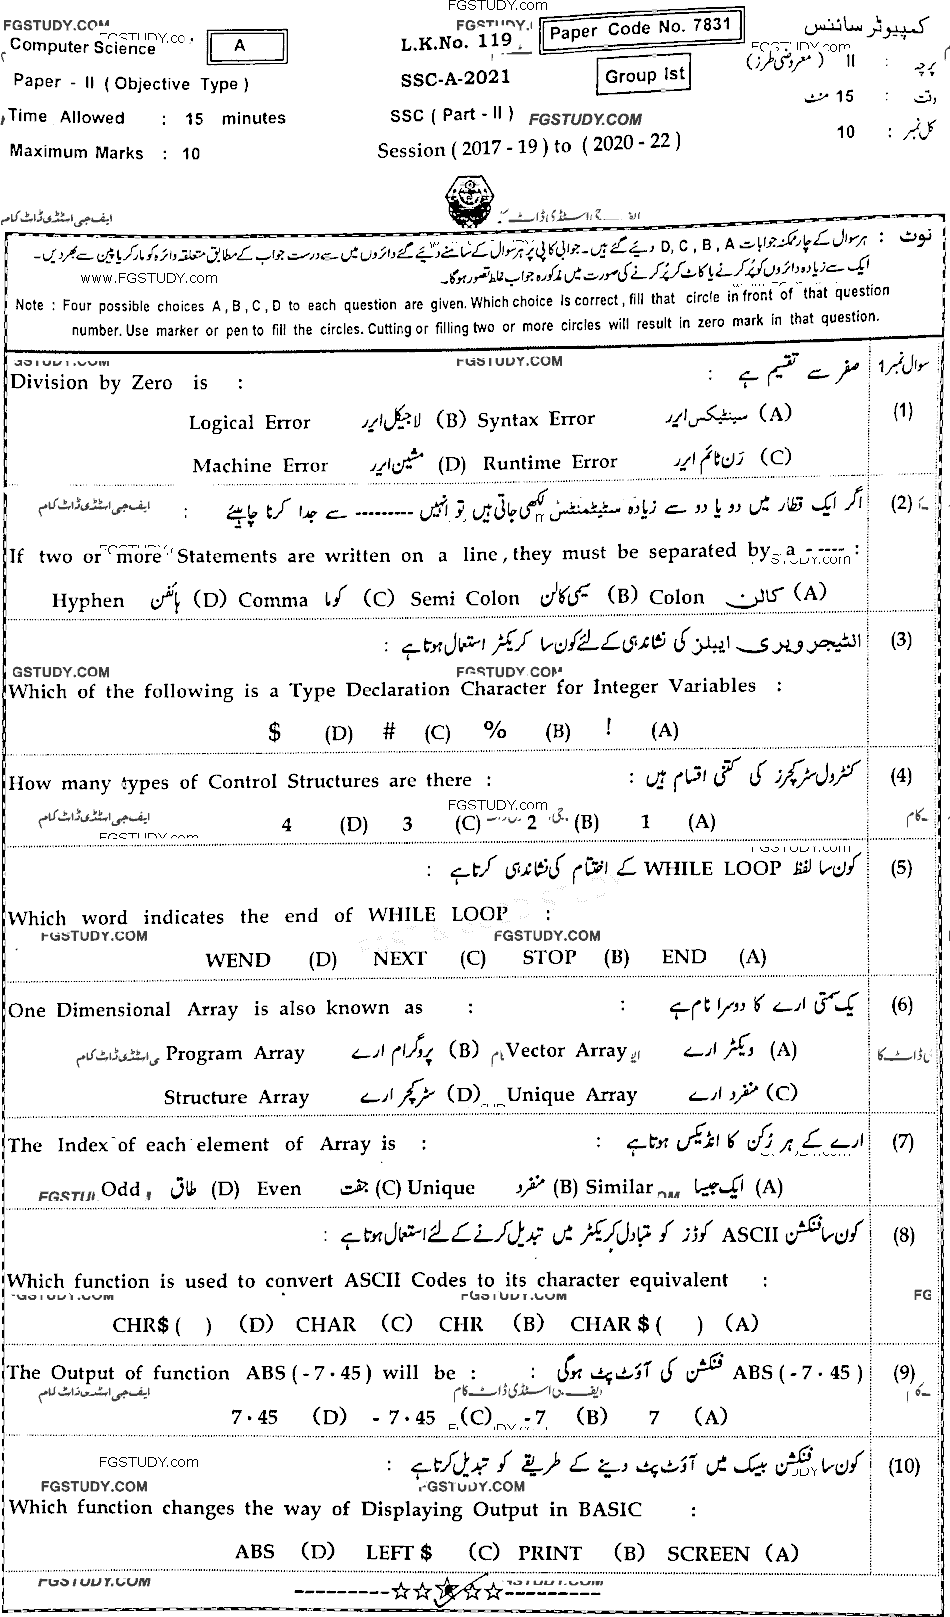 FGSTUDY.com
FGSTUDY.COM
Computer Science
A
L.K.No. 119
Paper Code No. 7831
کمپیوٹر سائنس
Paper - II ( Objective Type )
SSC-A-2021
Group Ist
پرچہ : II (معروضی طرز)
Time Allowed : 15 minutes
SSC ( Part - II ) FGSTUDY.COM
وقت : 15 منٹ
Maximum Marks : 10
Session ( 2017 - 19 ) to ( 2020 - 22 )
کل نمبر : 10
ایف جی اسٹڈی ڈاٹ کام
نوٹ : ہر سوال کے چار ممکنہ جوابات D, C, B, A دیئے گئے ہیں۔ جوابی کاپی پر ہر سوال کے سامنے دیئے گئے دائروں میں سے درست جواب کے مطابق متعلقہ دائرہ کو مارکر یا پین سے بھر دیں۔
ایک سے زیادہ دائروں کو پُر کرنے یا کاٹ کر پُر کرنے کی صورت میں مذکورہ جواب غلط تصور ہوگا۔
www.FGSTUDY.com
Note : Four possible choices A, B, C, D to each question are given. Which choice is correct, fill that circle in front of that question
number. Use marker or pen to fill the circles. Cutting or filling two or more circles will result in zero mark in that question.
FGSTUDY.COM
سوال نمبر 1 صفر سے تقسیم ہے :
Division by Zero is : (1)
(A) سینٹیکس ایرر Syntax Error (B) لاجیکل ایرر Logical Error
(C) رن ٹائم ایرر Runtime Error (D) مشین ایرر Machine Error
(2) اگر ایک قطار میں دو یا دو سے زیادہ سٹیٹمنٹس لکھی جاتی ہیں تو انہیں --------- سے جدا کرنا چاہیئے :
ایف جی اسٹڈی ڈاٹ کام
If two or more Statements are written on a line, they must be separated by a ----- :
(A) کالن Colon (B) سیمی کالن Semi Colon (C) کوما Comma (D) ہائفن Hyphen
(3) انٹیجر ویری ایبلز کی نشاندہی کے لئے کون سا کریکٹر استعمال ہوتا ہے :
GSTUDY.COM FGSTUDY.COM
Which of the following is a Type Declaration Character for Integer Variables :
(A) ! (B) % (C) # (D) $
(4) کنٹرول سٹرکچرز کی کتنی اقسام ہیں :
How many types of Control Structures are there :
FGSTUDY.com
ایف جی اسٹڈی ڈاٹ کام
(A) 1 (B) 2 (C) 3 (D) 4
FGSTUDY.com
(5) کون سا لفظ WHILE LOOP کے اختتام کی نشاندہی کرتا ہے :
Which word indicates the end of WHILE LOOP :
FGSTUDY.COM FGSTUDY.COM
(A) END (B) STOP (C) NEXT (D) WEND
(6) یک سمتی ارے کا دوسرا نام ہے :
One Dimensional Array is also known as :
(A) ویکٹر ارے Vector Array (B) پروگرام ارے Program Array
(C) منفرد ارے Unique Array (D) سٹرکچر ارے Structure Array
(7) ارے کے ہر رُکن کا انڈیکس ہوتا ہے :
The Index of each element of Array is :
(A) ایک جیسا Similar (B) منفرد Unique (C) جفت Even (D) طاق Odd
(8) کون سا فنکشن ASCII کوڈز کو متبادل کریکٹر میں تبدیل کرنے کے لئے استعمال ہوتا ہے :
Which function is used to convert ASCII Codes to its character equivalent :
(A) CHAR $ ( ) (B) CHR (C) CHAR (D) CHR$ ( )
(9) ABS ( - 7 . 45 ) فنکشن کی آؤٹ پٹ ہوگی :
The Output of function ABS ( - 7 . 45 ) will be :
ایف جی اسٹڈی ڈاٹ کام
(A) 7 (B) -7 (C) - 7 . 45 (D) 7 . 45
(10) کون سا فنکشن بیسک میں آؤٹ پٹ دینے کے طریقے کو تبدیل کرتا ہے :
FGSTUDY.com
FGSTUDY.COM
Which function changes the way of Displaying Output in BASIC :
(A) SCREEN (B) PRINT (C) LEFT $ (D) ABS
FGSTUDY.COM